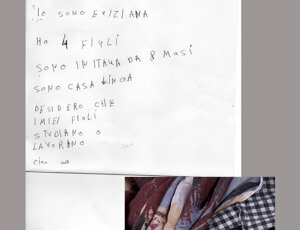 IO SONO EGIZIANA
HO 4 FIGLI
SONO IN ITALIA DA 8 MASI
SONO CASA LINGA
DESIDERO CHE
I MIEI FIGLI
STUDIANO O
LAVORANO
Ciao